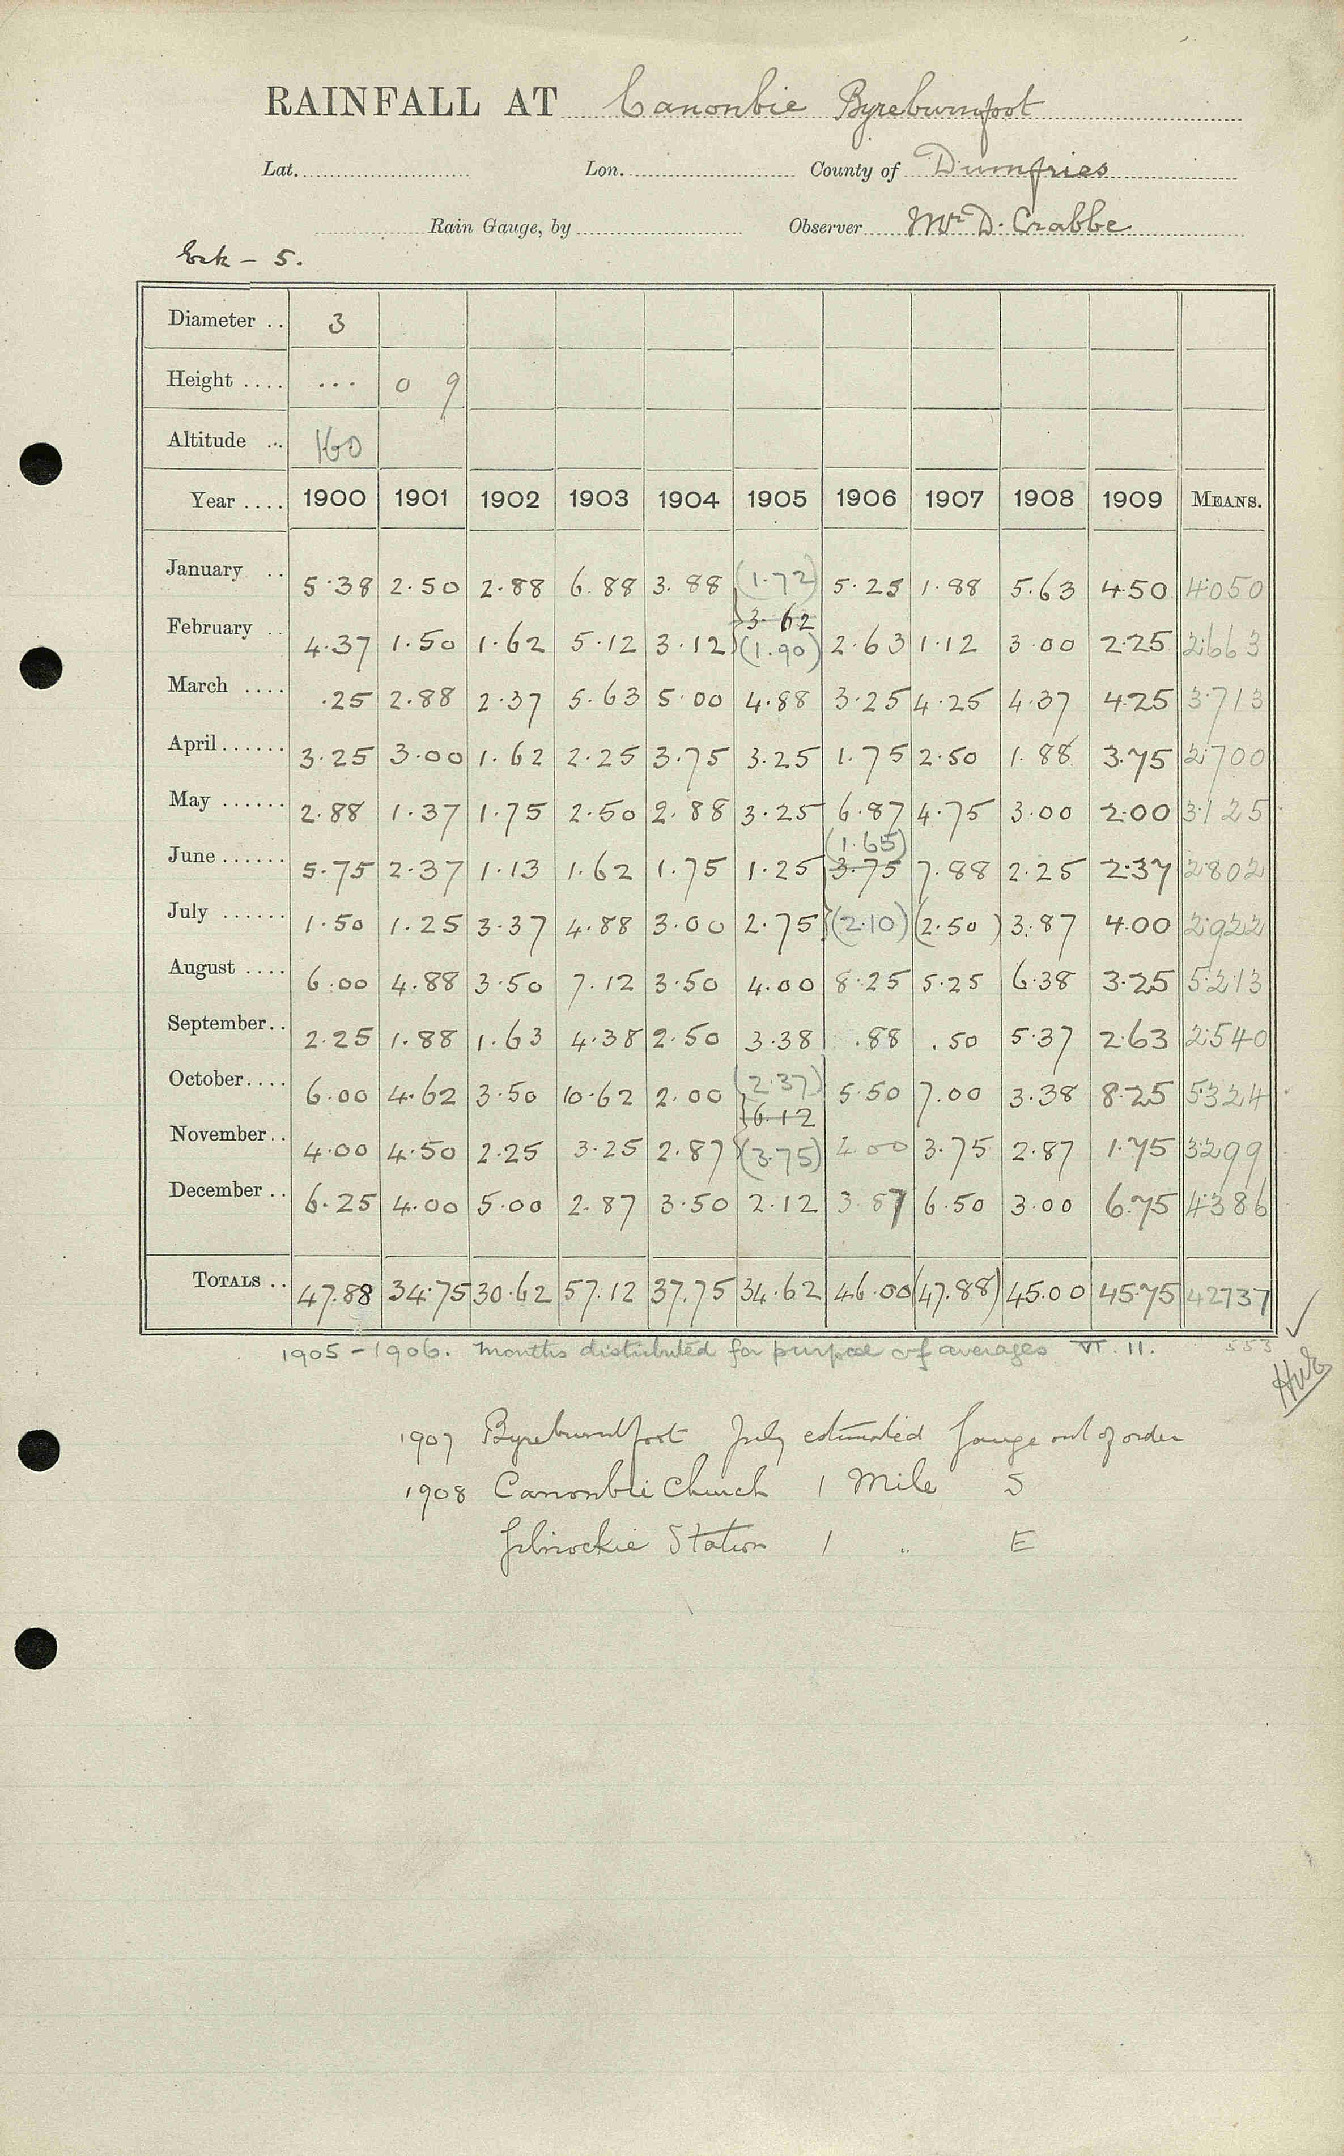 RAINFALL AT Canonbie Byreburnfoot
Lat. Lon. County of Dumfries
Rain Gauge, by Observer Mr D. Crabbe
Esk - 5.
Diameter .. 3
Height .... ... 0 9
Altitude .. 160
Year .... 1900 1901 1902 1903 1904 1905 1906 1907 1908 1909 MEANS.
January .. 5.38 2.50 2.88 6.88 3.88 (1.72) 5.25 1.88 5.63 4.50 4.050
3.62
February .. 4.37 1.50 1.62 5.12 3.12 (1.90) 2.63 1.12 3.00 2.25 2.663
March .... .25 2.88 2.37 5.63 5.00 4.88 3.25 4.25 4.37 4.25 3.713
April...... 3.25 3.00 1.62 2.25 3.75 3.25 1.75 2.50 1.88 3.75 2.700
May ...... 2.88 1.37 1.75 2.50 2.88 3.25 6.87 4.75 3.00 2.00 3.125
(1.65)
June ...... 5.75 2.37 1.13 1.62 1.75 1.25 3.75 7.88 2.25 2.37 2.802
July ...... 1.50 1.25 3.37 4.88 3.00 2.75 (2.10) (2.50) 3.87 4.00 2.922
August .... 6.00 4.88 3.50 7.12 3.50 4.00 8.25 5.25 6.38 3.25 5.213
September.. 2.25 1.88 1.63 4.38 2.50 3.38 .88 .50 5.37 2.63 2.540
October.... 6.00 4.62 3.50 10.62 2.00 (2.37) 5.50 7.00 3.38 8.25 5.324
6.12
November.. 4.00 4.50 2.25 3.25 2.87 (3.75) 4.00 3.75 2.87 1.75 3.299
December .. 6.25 4.00 5.00 2.87 3.50 2.12 3.87 6.50 3.00 6.75 4.386
TOTALS .. 47.88 34.75 30.62 57.12 37.75 34.62 46.00 (47.88) 45.00 45.75 42737
1905 - 1906. Months distributed for purpose of averages VI. 11. 553
1907 Byreburnfoot July estimated Gauge out of order
1908 Canonbie Church 1 Mile S
Gilnockie Station 1 " E